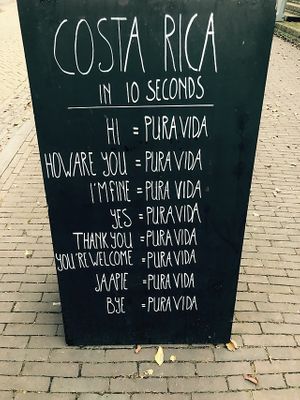 COSTA RICA
IN 10 SECONDS
HI = PURA VIDA
HOW ARE YOU = PURA VIDA
I'M FINE = PURA VIDA
YES = PURA VIDA
THANK YOU = PURA VIDA
YOU'RE WELCOME = PURA VIDA
JAAPIE = PURA VIDA
BYE = PURA VIDA